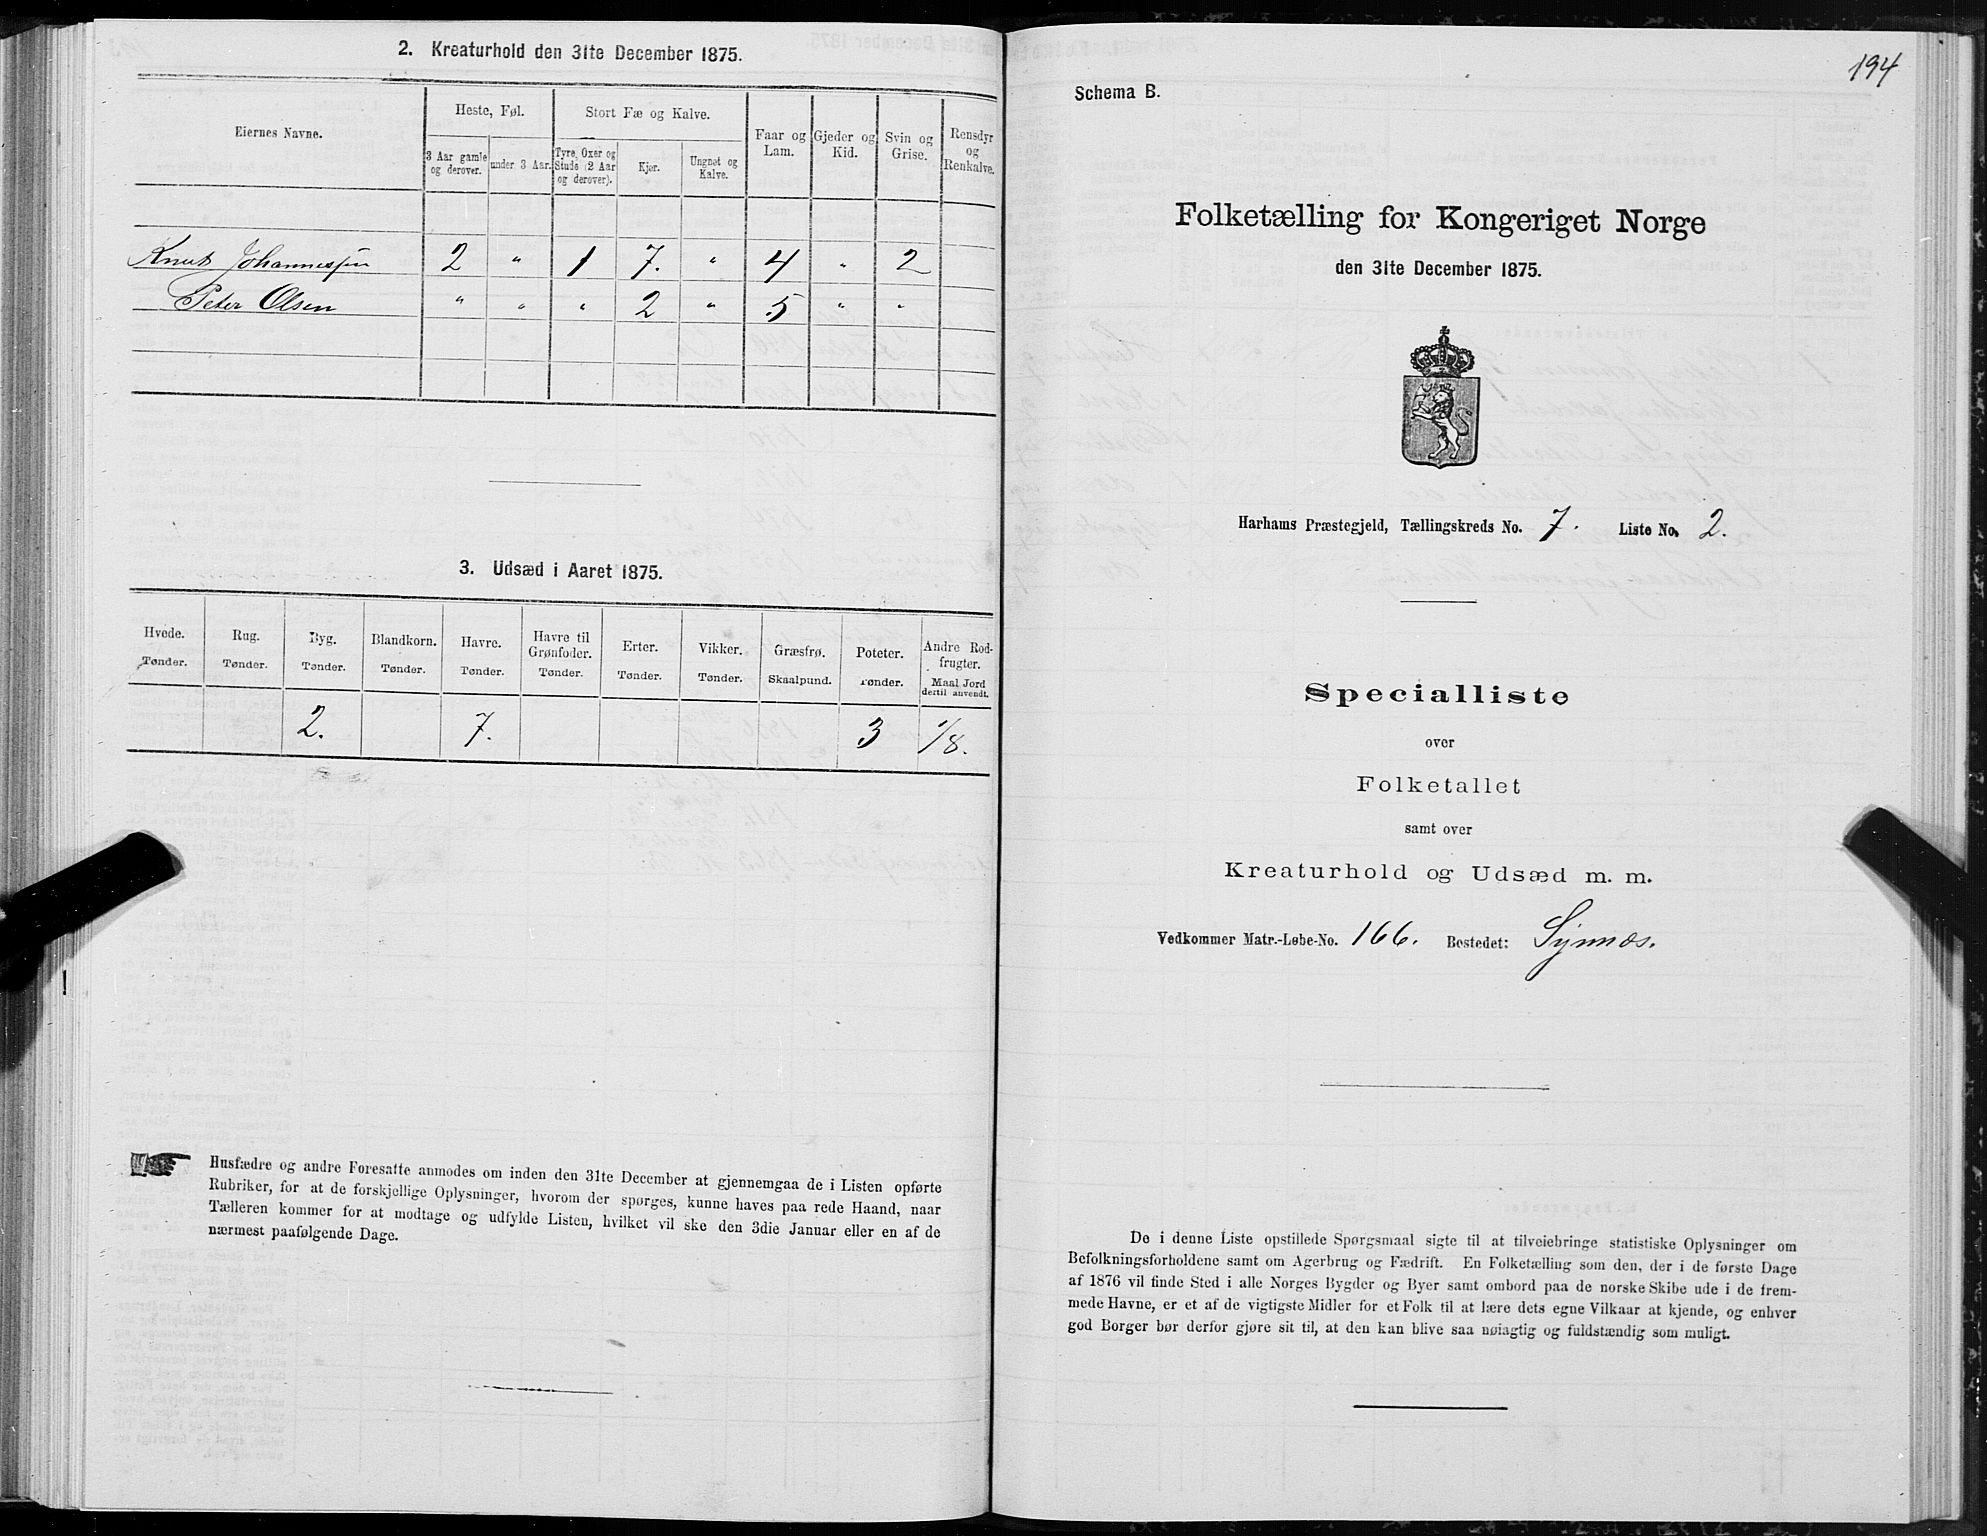 2. Kreaturhold den 31te December 1875.
Eiernes Navne.
Heste, Føl.
Stort Fæ og Kalve.
Faar og Lam.
Gjeder og Kid.
Svin og Grise.
Rensdyr og Renkalve.
3 Aar gamle og derover.
under 3 Aar.
Tyre, Oxer og Stude (2 Aar og derover).
Kjør.
Ungnøt og Kalve.
Knut Johannessen 2 " 1 7. " 4 " 2
Peter Olsen " " " 2 " 5 " "
3. Udsæd i Aaret 1875.
Hvede. Rug. Byg. Blandkorn. Havre. Havre til Grønfoder. Erter. Vikker. Græsfrø. Poteter. Andre Rodfrugter.
Tønder. Tønder. Tønder. Tønder. Tønder. Tønder. Tønder. Tønder. Skaalpund. Tønder. Maal Jord dertil anvendt.
2. 7. 3 1/8.
Husfædre og andre Foresatte anmodes om inden den 31te December at gjennemgaa de i Listen opførte
Rubriker, for at de forskjellige Oplysninger, hvorom der spørges, kunne haves paa rede Haand, naar
Tælleren kommer for at modtage og udfylde Listen, hvilket vil ske den 3die Januar eller en af de
nærmest paafølgende Dage.
194
Schema B.
Folketælling for Kongeriget Norge
den 31te December 1875.
Harhams Præstegjeld, Tællingskreds No. 7. Liste No. 2.
Specialliste
over
Folketallet
samt over
Kreaturhold og Udsæd m. m.
Vedkommer Matr.-Løbe-No. 166. Bostedet: Synnæs.
De i denne Liste opstillede Spørgsmaal sigte til at tilveiebringe statistiske Oplysninger om
Befolkningsforholdene samt om Agerbrug og Fædrift. En Folketælling som den, der i de første Dage
af 1876 vil finde Sted i alle Norges Bygder og Byer samt ombord paa de norske Skibe ude i de frem-
mede Havne, er et af de vigtigste Midler for et Folk til at lære dets egne Vilkaar at kjende, og enhver
god Borger bør derfor gjøre sit til, at den kan blive saa nøiagtig og fuldstændig som muligt.